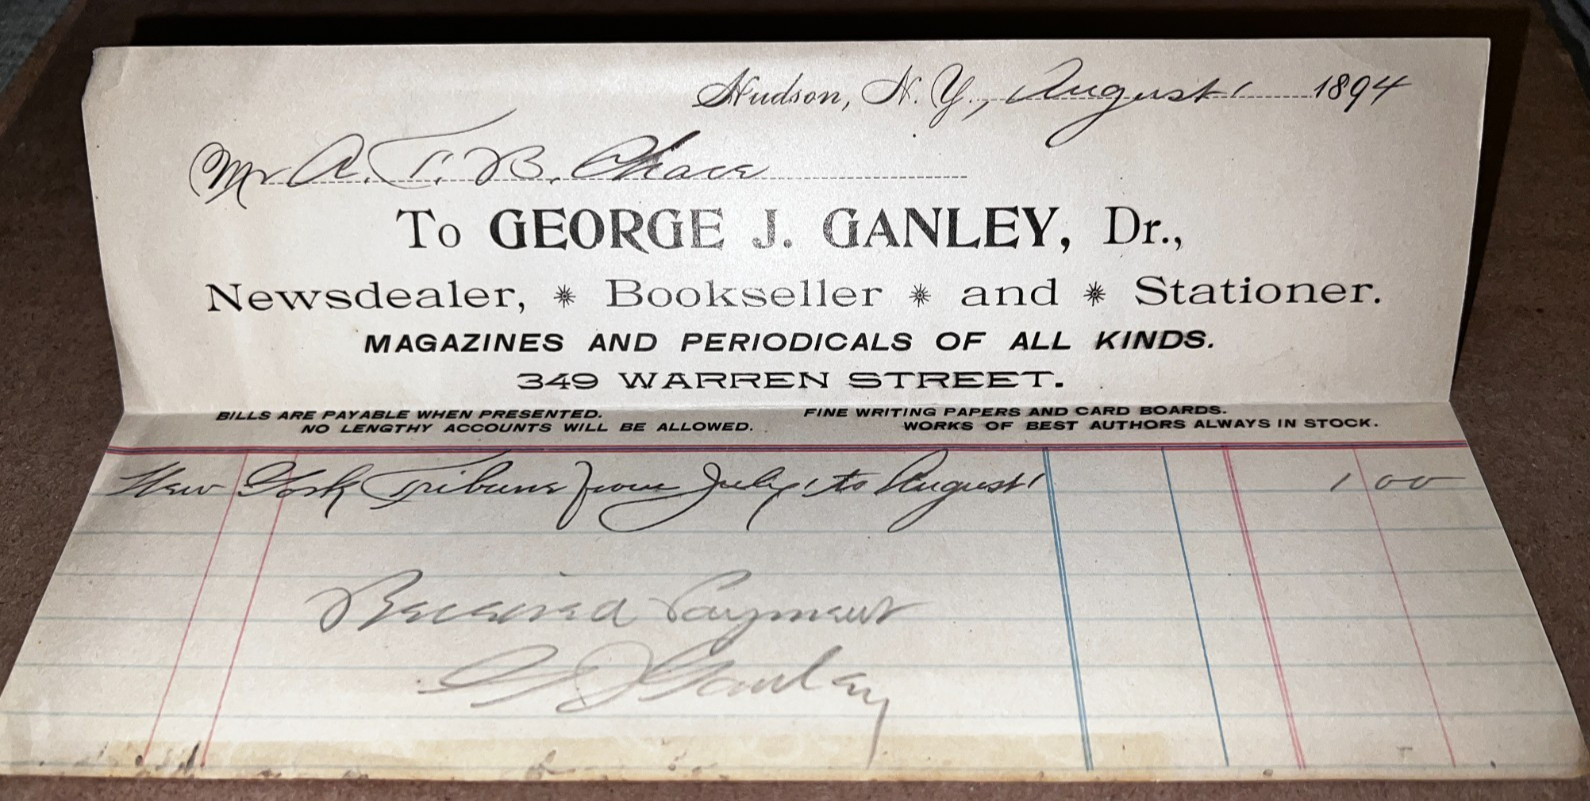 Hudson, N. Y., August 1 1894
Mr A. T. B. Chace
To GEORGE J. GANLEY, Dr.,
Newsdealer, * Bookseller * and * Stationer.
MAGAZINES AND PERIODICALS OF ALL KINDS.
349 WARREN STREET.
BILLS ARE PAYABLE WHEN PRESENTED.
NO LENGTHY ACCOUNTS WILL BE ALLOWED.
FINE WRITING PAPERS AND CARD BOARDS.
WORKS OF BEST AUTHORS ALWAYS IN STOCK.
New York Tribune from July 1 to August 1 1 00
Received Payment
G J Ganley